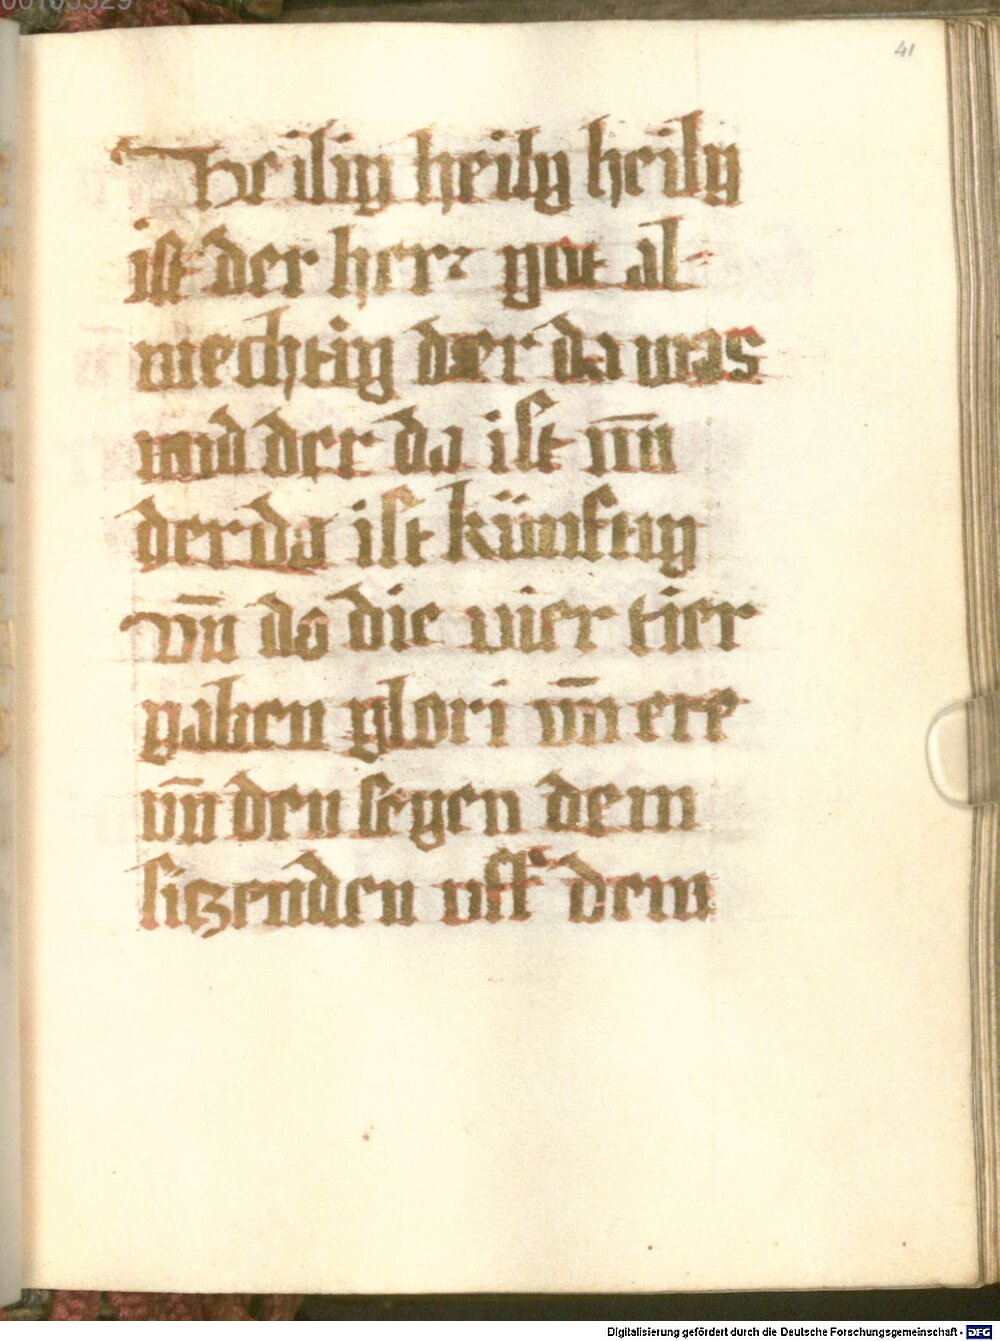 41
Heilig heilg heilg
ist der herr got al-
mechtig der da was
und der da ist vn̄
der da ist künftig
vn̄ do die vier tier
gaben glori vn̄ ere
vn̄ den segen dem
siczenden uff dem
Digitalisierung gefördert durch die Deutsche Forschungsgemeinschaft - DFG